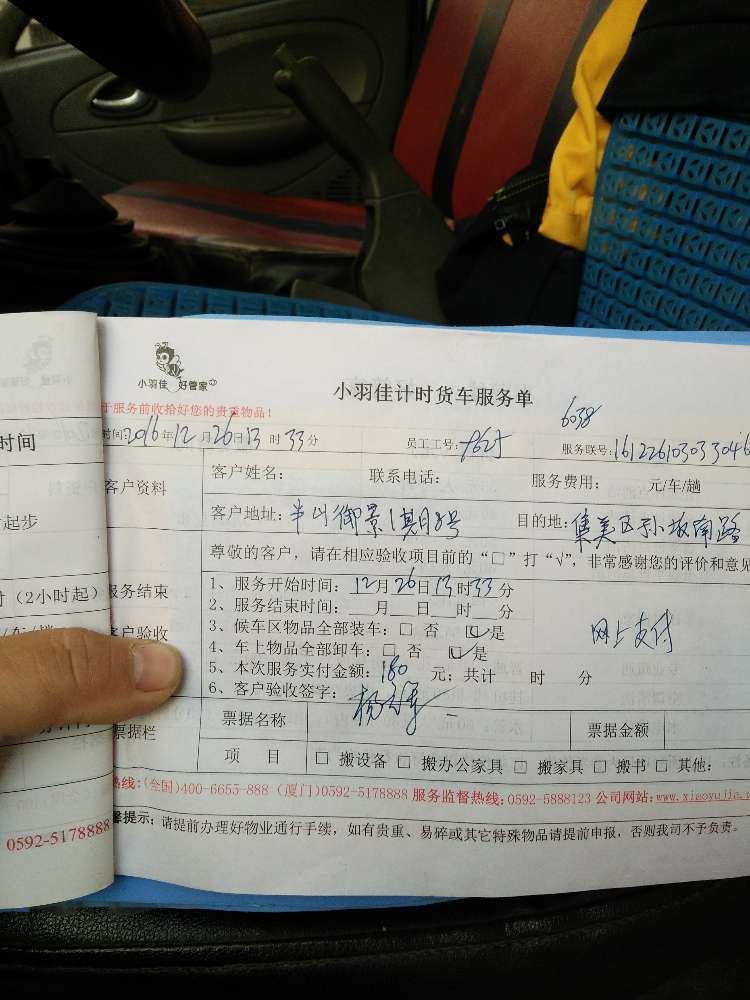 小羽佳 好管家
小羽佳计时货车服务单
于服务前收给好您的贵重物品！
6038
时间2016年12月26日13时33分 员工工号: 9625 服务联号:161226103033046
时间
客户资料
客户姓名: 联系电话: 服务费用: 元/车/趟
起步
客户地址: 半山御景1期8号 目的地: 集美区孙坂南路
尊敬的客户，请在相应验收项目前的“□”打“√”，非常感谢您的评价和意见
(2小时起)
服务结束
客户验收
1、服务开始时间: 12月26日13时33分
2、服务结束时间: 月 日 时 分
3、候车区物品全部装车: □ 否 ☑ 是
网上支付
4、车上物品全部卸车: □ 否 ☑ 是
5、本次服务实付金额: 180 元; 共计 时 分
6、客户验收签字:
票据栏
票据名称 票据金额
项 目 □ 搬设备 □ 搬办公家具 □ 搬家具 □ 搬书 □ 其他:
热线:(全国)400-6655-888 (厦门)0592-5178888 服务监督热线:0592-5888123 公司网站:www.xiaoyujia.
0592-5178888
馨提示: 请提前办理好物业通行手续，如有贵重、易碎或其它特殊物品请提前申报，否则我司不予负责。